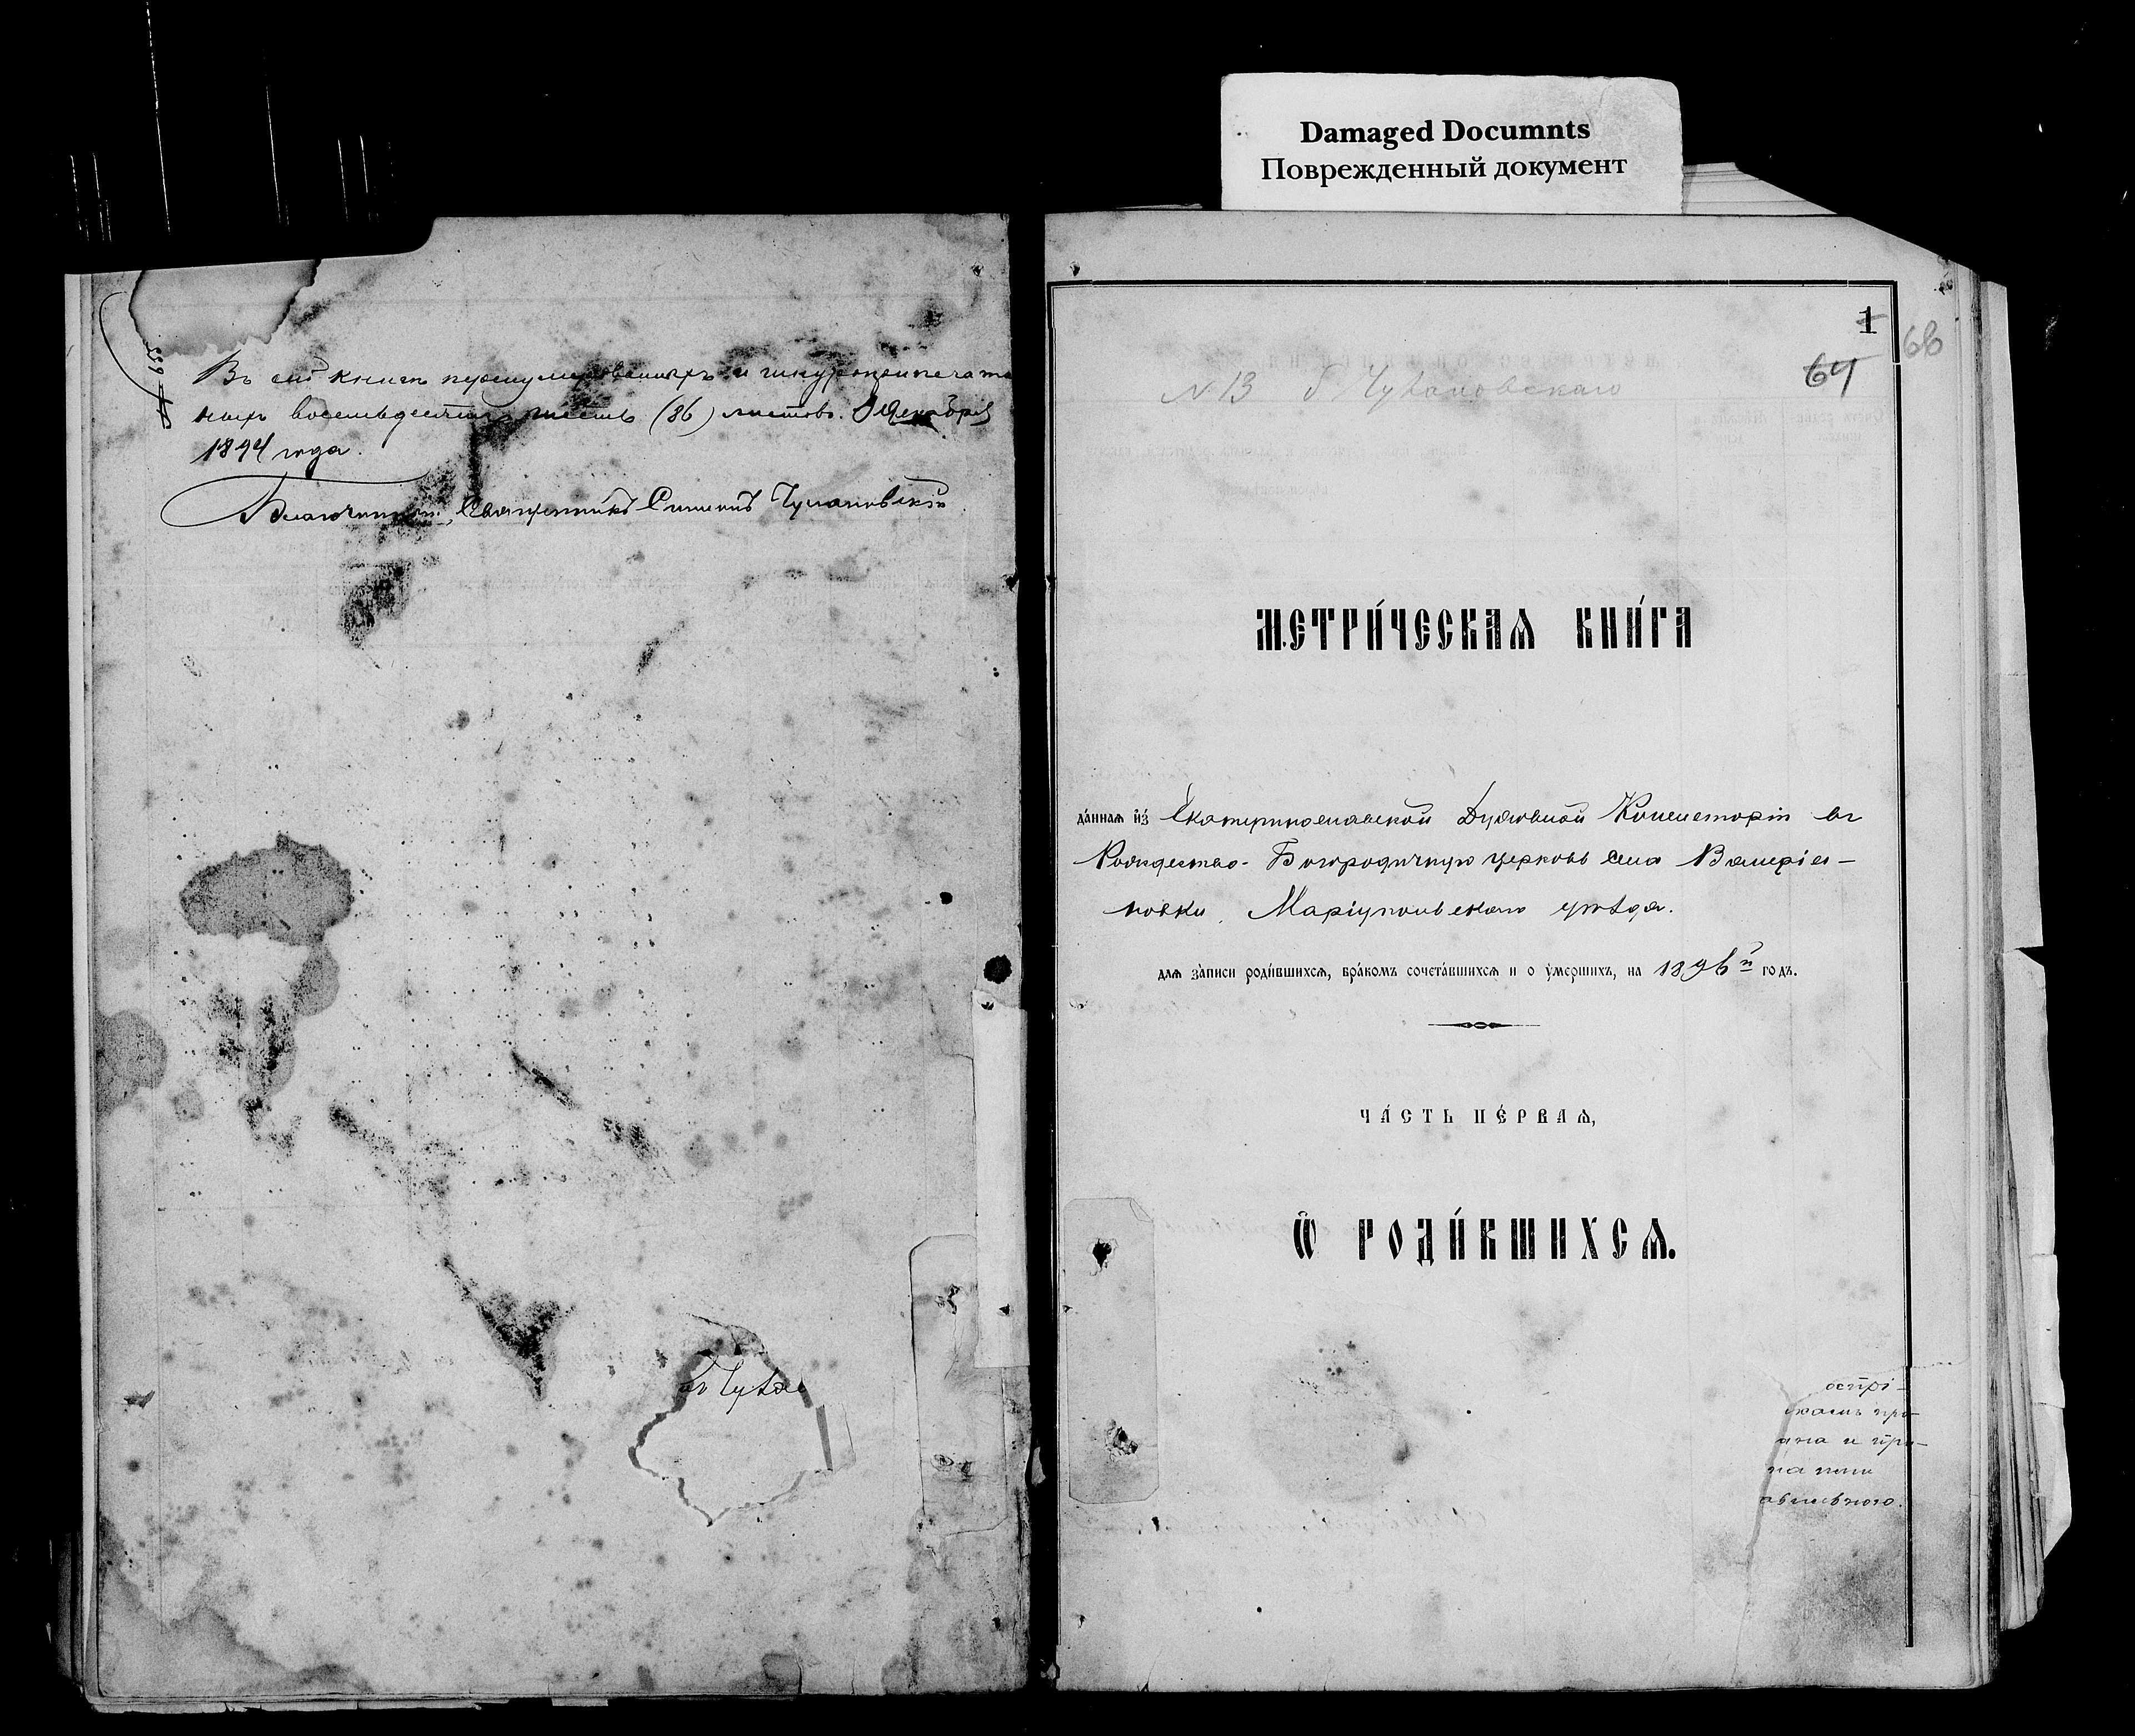 Damaged Documnts
Поврежденный документ
Въ сей книгѣ пронумерованныхъ и шнуроприпечатан
ныхъ восемьдесятъ шесть (86) листовъ. Декабря
1894 года.
Благочинный, Священникъ Симеонъ Чулановскій
1
64
66
N 13
МЕТРИ́ЧЕСКАѦ КНИ́ГА
да́ннаѧ и҆з̾ Екатеринославской Духовной Консисторіи въ
Рождество-Богородичную церковь села Валеріа-
новки, Маріупольскаго уѣзда.
длѧ за́писи роди́вшихсѧ, бра́комъ сочета́вшихсѧ и о ᲂу҆ме́ршихъ, на 1896й годъ.
ЧА́СТЬ ПЕ́РВАѦ,
Ѽ РОДИ́ВШИХСѦ.